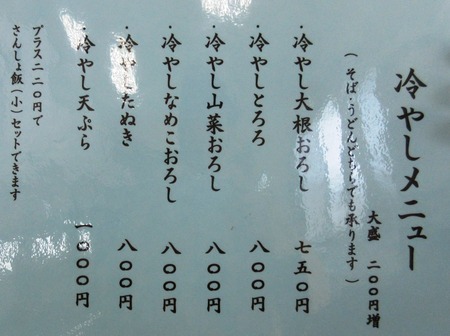 冷やしメニュー
大盛 二〇〇円増
（そば・うどんどちらでも承ります）
・冷やし大根おろし 七五〇円
・冷やしとろろ 八〇〇円
・冷やし山菜おろし 八〇〇円
・冷やしなめこおろし 八〇〇円
・冷やしたぬき 八〇〇円
・冷やし天ぷら 一〇〇〇円
プラス二二〇円で
さんしょ飯（小）セットできます